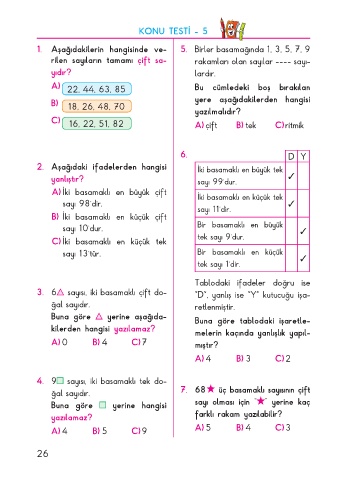 KONU TESTİ - 5
1. Aşağıdakilerin hangisinde ve-
rilen sayıların tamamı çift sa-
yıdır?
A) 22, 44, 63, 85
B) 18, 26, 48, 70
C) 16, 22, 51, 82
2. Aşağıdaki ifadelerden hangisi
yanlıştır?
A) İki basamaklı en büyük çift
sayı 98'dir.
B) İki basamaklı en küçük çift
sayı 10'dur.
C) İki basamaklı en küçük tek
sayı 13'tür.
3. 6△ sayısı, iki basamaklı çift do-
ğal sayıdır.
Buna göre △ yerine aşağıda-
kilerden hangisi yazılamaz?
A) 0 B) 4 C) 7
4. 9□ sayısı, iki basamaklı tek do-
ğal sayıdır.
Buna göre □ yerine hangisi
yazılamaz?
A) 4 B) 5 C) 9
5. Birler basamağında 1, 3, 5, 7, 9
rakamları olan sayılar ---- sayı-
lardır.
Bu cümledeki boş bırakılan
yere aşağıdakilerden hangisi
yazılmalıdır?
A) çift B) tek C) ritmik
6. D Y
İki basamaklı en büyük tek
sayı 99'dur. ✓
İki basamaklı en küçük tek
sayı 11'dir. ✓
Bir basamaklı en büyük
tek sayı 9'dur. ✓
Bir basamaklı en küçük
tek sayı 1'dir. ✓
Tablodaki ifadeler doğru ise
"D", yanlış ise "Y" kutucuğu işa-
retlenmiştir.
Buna göre tablodaki işaretle-
melerin kaçında yanlışlık yapıl-
mıştır?
A) 4 B) 3 C) 2
7. 68★ üç basamaklı sayısının çift
sayı olması için "★" yerine kaç
farklı rakam yazılabilir?
A) 5 B) 4 C) 3
26